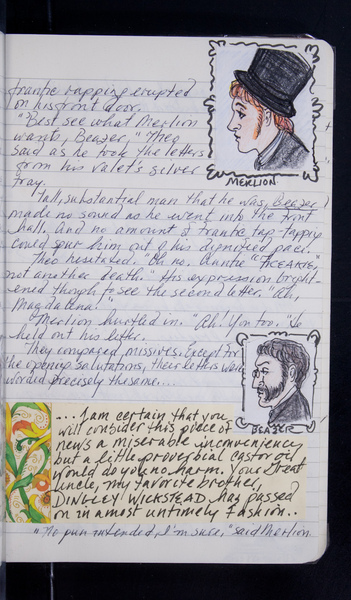 frantic rapping erupted
on his front door.
"Best see what Merlion
wants, Beazer," Theo
said as he took the letters
from his valet's silver
tray.
MERLION
Tall, substantial man that he was, Beazer
made no sound as he went into the front
hall. And no amount of frantic tap-tapping
could spur him out of his dignified pace.
Theo hesitated. "Oh no. Auntie
not another death." His expression bright-
ened though to see the second letter. "Ah,
Magdalena!"
Merlion hurtled in. "Ah! You too." He
held out his letter.
They compared missives. Except for
the opening salutations, their letters were
worded precisely the same...
BEAZER
... I am certain that you
will consider this piece of
news a miserable inconveniency
but a little proverbial castor oil
would do you no harm. Your Great
Uncle, my favorite brother,
DINGLEY WICKSTEAD has passed
on in a most untimely fashion..
"No pun intended, I'm sure," said Merlion.